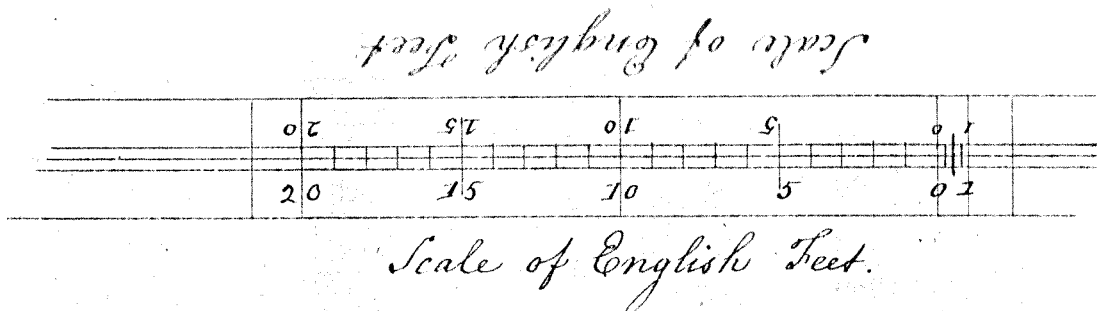 Scale of English Feet
0 2 15 10 5 0 1
20 15 10 5 0 1
Scale of English Feet.